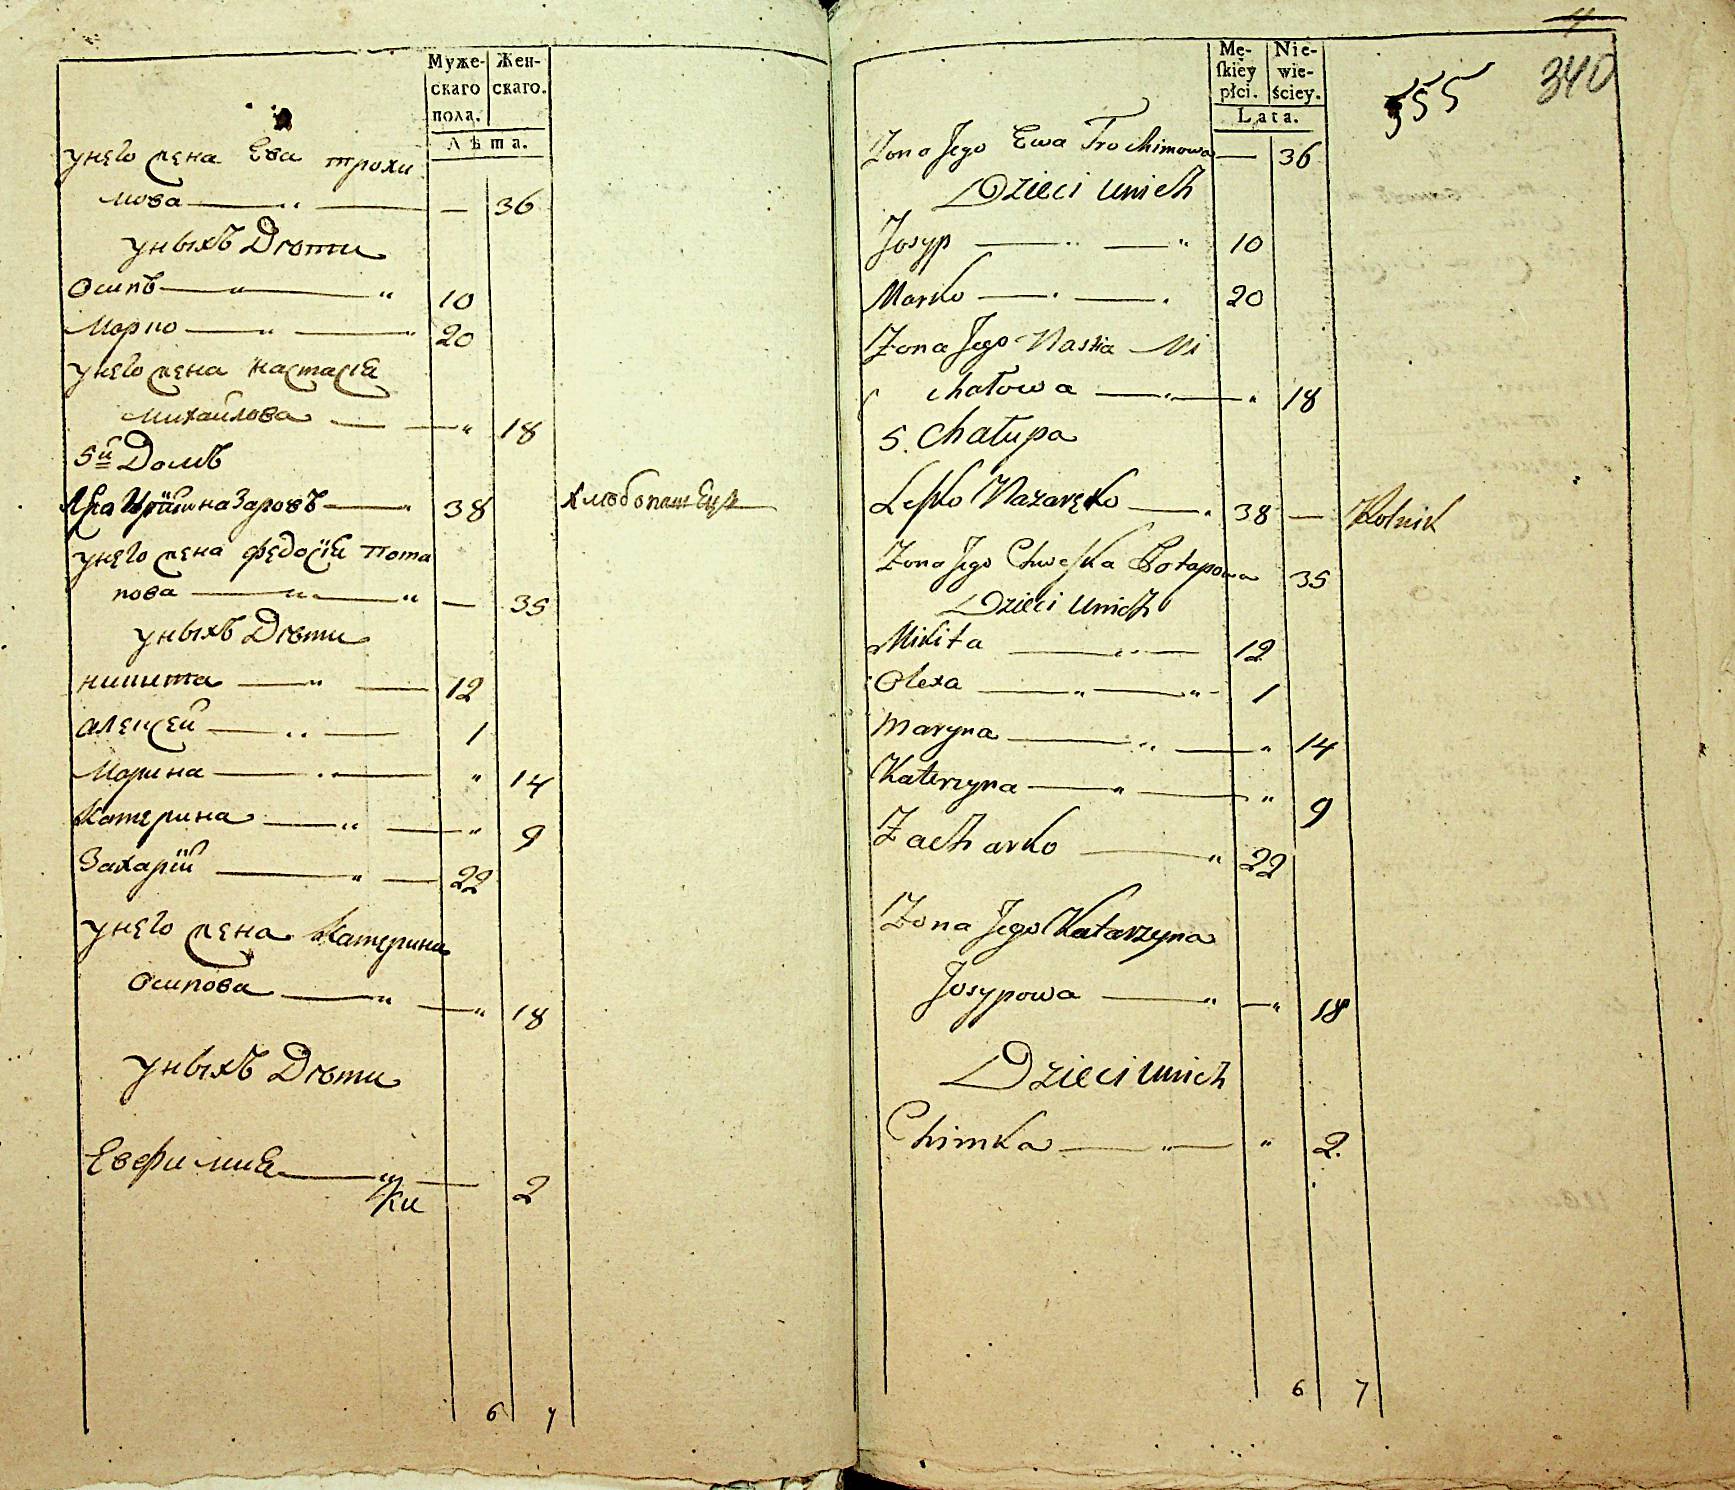 Муже-
скаго
пола.
Жен-
скаго.
Лѣта.
унего жена Ева трохи
мова — " — — 36
уныхЪ Дѣти
осипЪ — " — " 10
Марко — " — " 20
унего жена настасіа
михайлова — — " 18
5й ДомЪ
назаровЪ — " 38 хлѣбопашецЪ
унего жена федосіа Пота
пова — " — " — 35
уныхЪ Дѣти
никита — " — 12
алексей — " — 1
Марина — " — " 14
Катерина — " — " 9
Захарій — " — 22
унего жена Катерина
осипова — " — " 18
уныхЪ Дѣти
Евфимиа — " — 2
6 7
4
340
555
Mę-
ſkiéy
płci.
Nie-
wie-
ściey.
Lata.
Zona Jego Ewa Trochimowa — 36
Dzieci unich
Josyp — " — " 10
Marko — " — " 20
Zona Jego Nastia Mi
chałowa — " — " 18
5. Chałupa
Leſko Nazaręko — " 38 — Rolnik
Zona Jego Chweſka Potapowa 35
Dzieci unich
Mikita — " — 12
Olexa — " — " 1
Maryna — " — " 14
Katerzyna — " — " 9
Zacharko — " 22
Zona Jego Katarzyna
Josypowa — " — " 18
Dzieci unich
Chimka — " — " 2.
6 7